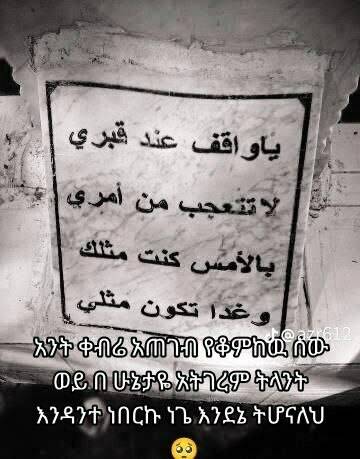 ياواقف عند قبري
لا تتعجب من أمري
بالأمس كنت مثلك
وغدا تكون مثلي
@azr612
አንት ቀብሬ አጠገብ የቆምከዉ ሰው
ወይ በ ሁኔታዬ አትገረም ትላንት
እንዳንተ ነበርኩ ነጌ እንደኔ ትሆናለህ
🥺